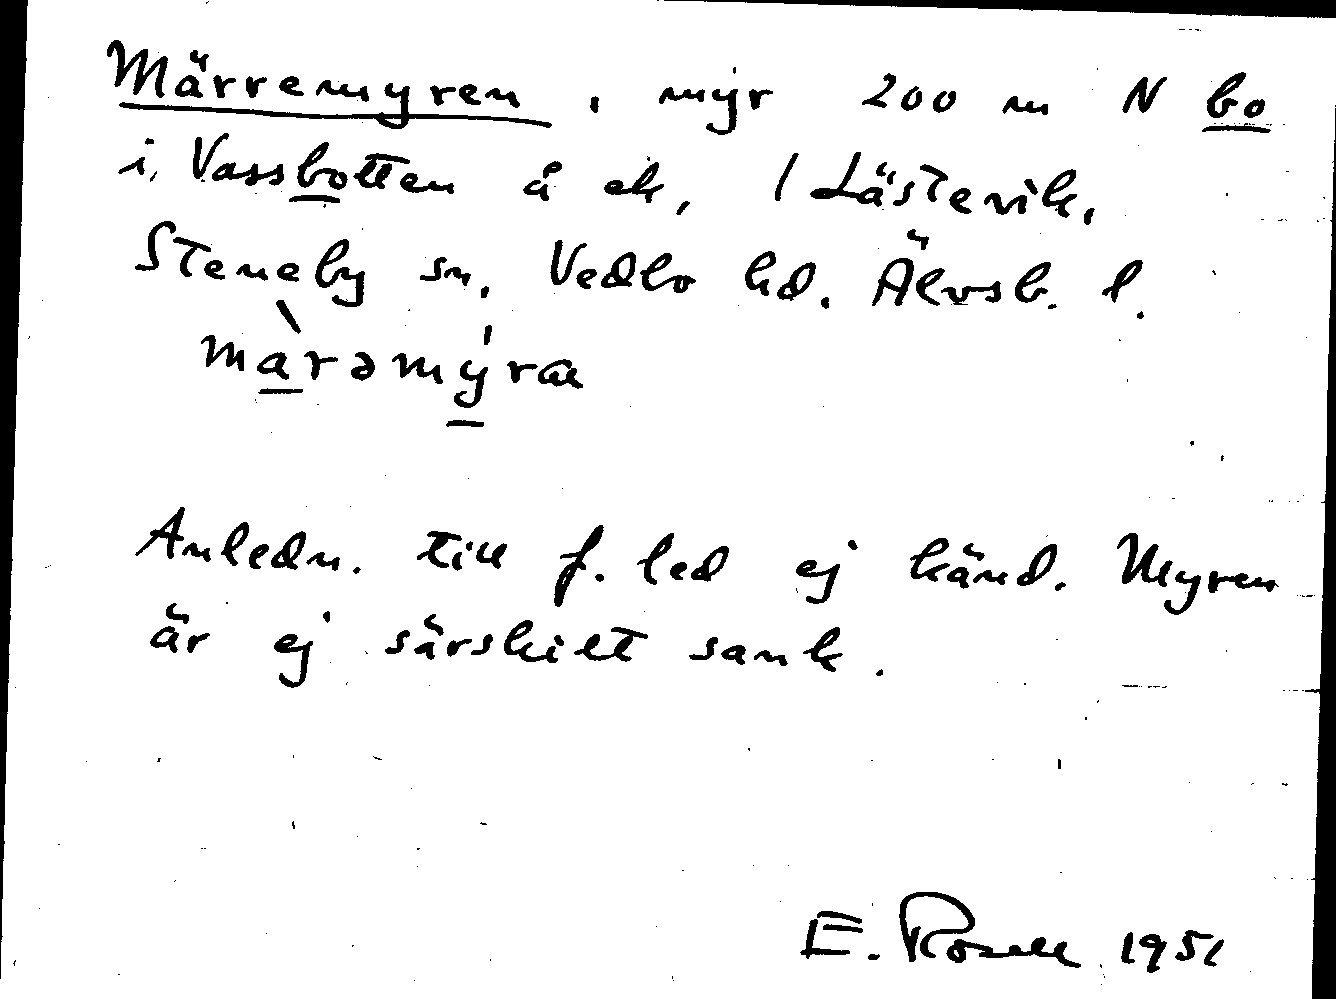 Märremyren, myr 200 m N bo
i Vassbotten å ek, 1 Lästevik,
Steneby sn, Vedbo hd. Älvsb. l.
màrəmýra
Anledn. till f. led ej känd. Myren
är ej särskilt sank.
E. Rosell 1951